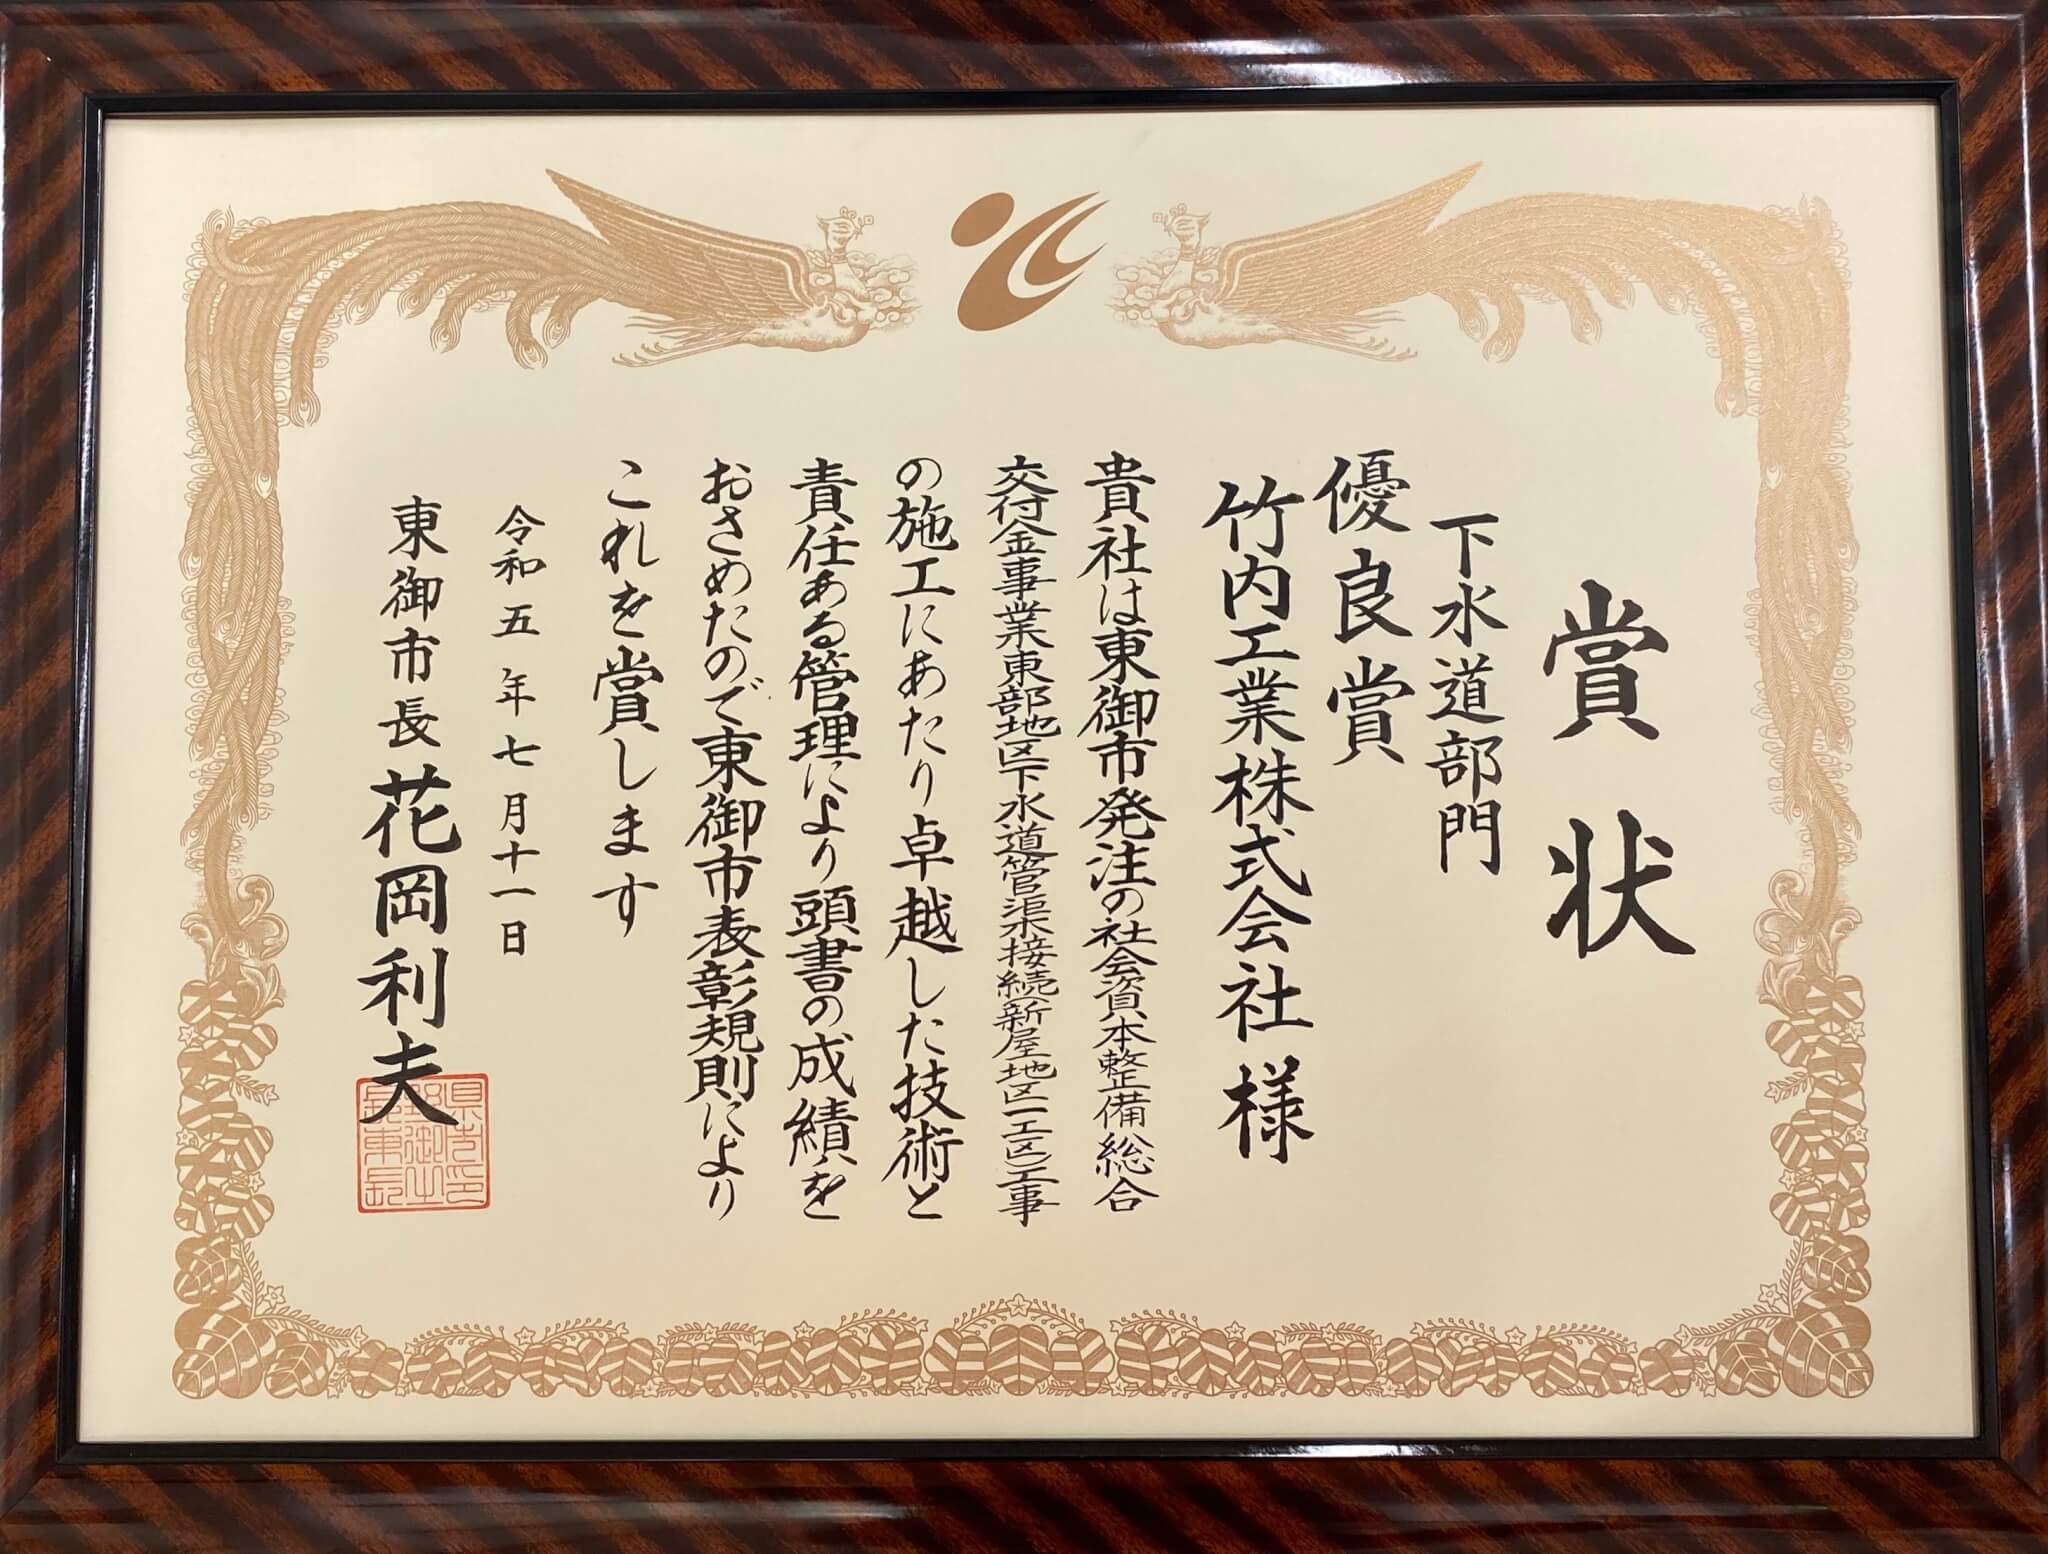 賞状
下水道部門
優良賞
竹内工業株式会社様
貴社は東御市発注の社会資本整備総合
交付金事業東部地区下水道管渠接続(新屋地区一工区)工事
の施工にあたり卓越した技術と
責任ある管理により頭書の成績を
おさめたので東御市表彰規則により
これを賞します
令和五年七月十一日
東御市長花岡利夫